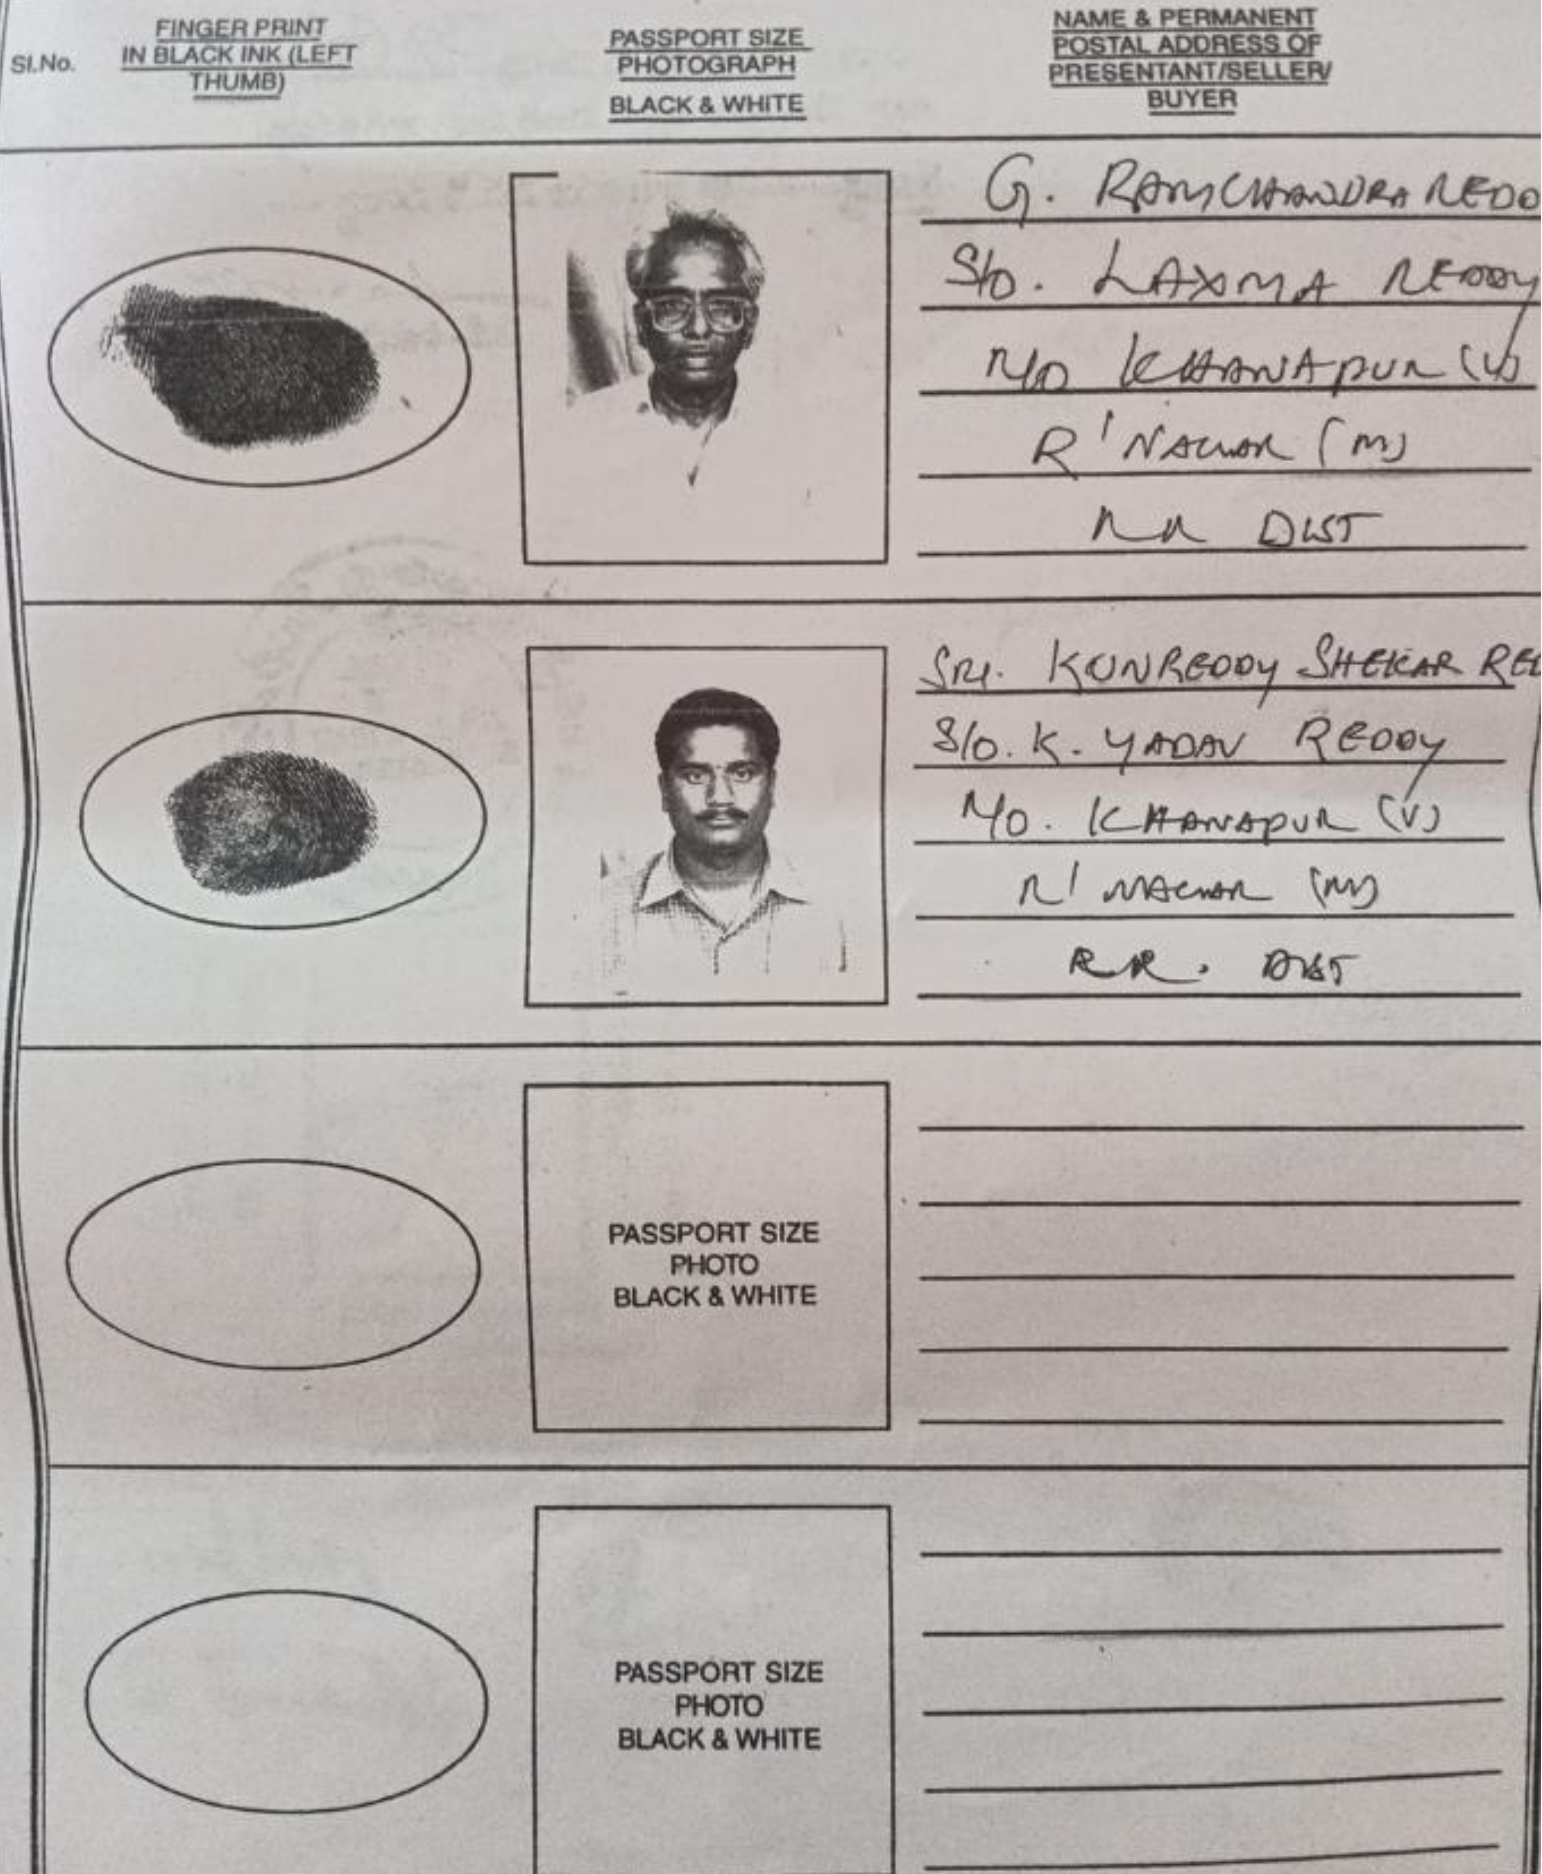 Sl.No.
FINGER PRINT
IN BLACK INK (LEFT
THUMB)
PASSPORT SIZE
PHOTOGRAPH
BLACK & WHITE
NAME & PERMANENT
POSTAL ADDRESS OF
PRESENTANT/SELLER/
BUYER
G. RAMCHANDRA REDD
S/O. LAXMA REDDY
R/O KHANAPUR (V)
R'NAGAR (M)
RR DIST
SRI. KUNREDDY SHEKAR RED
S/O. K. YADAV REDDY
R/O. KHANAPUR (V)
R'NAGAR (M)
RR. DIST
PASSPORT SIZE
PHOTO
BLACK & WHITE
PASSPORT SIZE
PHOTO
BLACK & WHITE